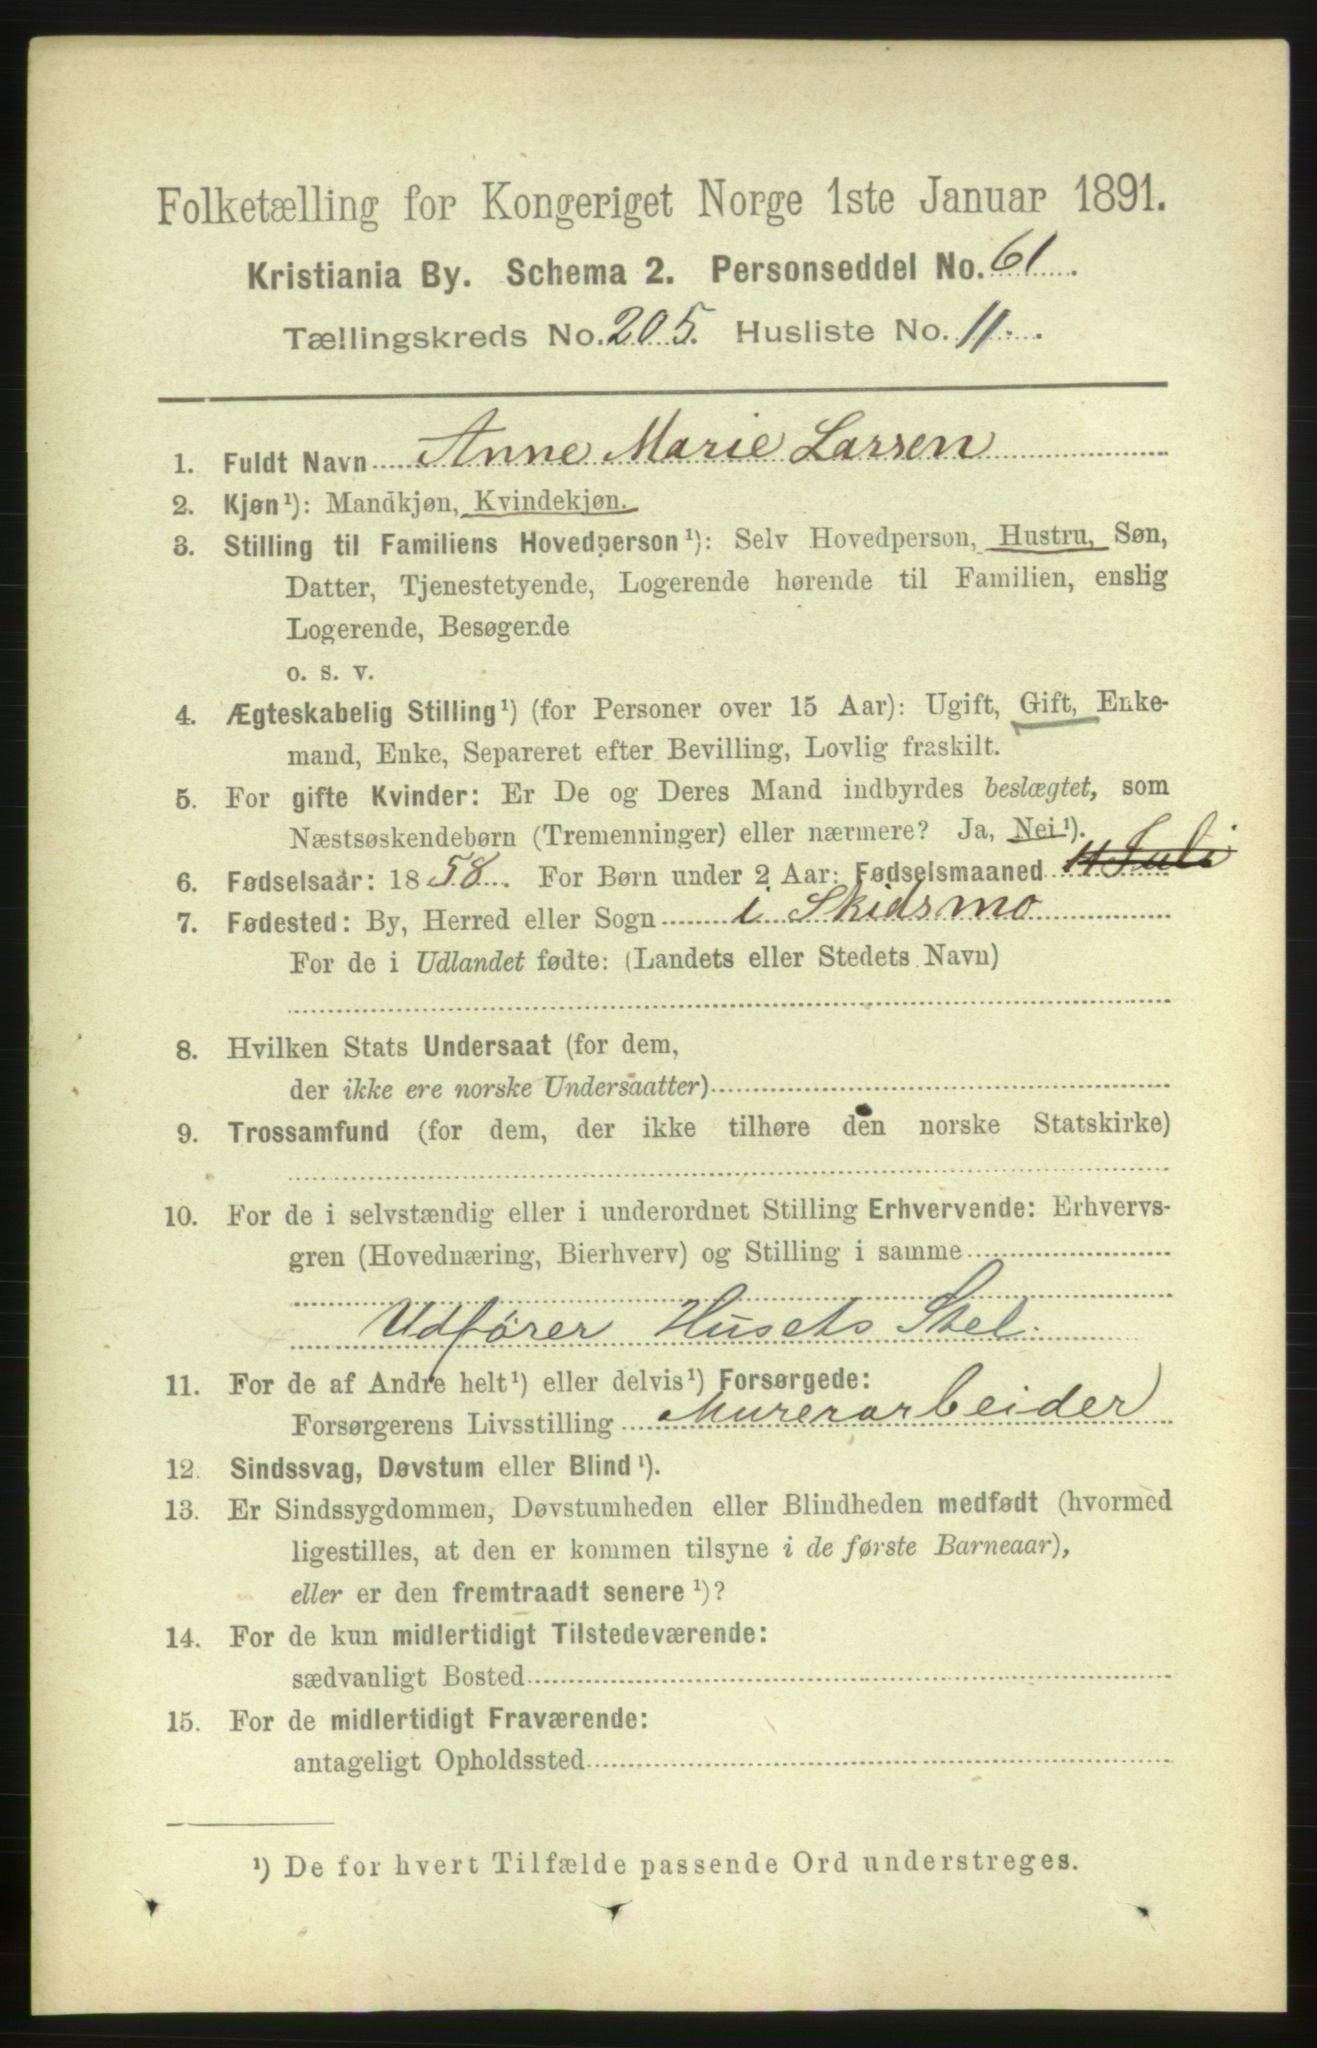 Folketælling for Kongeriget Norge 1ste Januar 1891.
Kristiania By. Schema 2. Personseddel No. 61.
Tællingskreds No. 205. Husliste No. 11.
1. Fuldt Navn Anne Marie Larsen
2. Kjøn¹): Mandkjøn, Kvindekjøn.
3. Stilling til Familiens Hovedperson¹): Selv Hovedperson, Hustru, Søn,
Datter, Tjenestetyende, Logerende hørende til Familien, enslig
Logerende, Besøgende
o. s. v.
4. Ægteskabelig Stilling¹) (for Personer over 15 Aar): Ugift, Gift, Enke-
mand, Enke, Separeret efter Bevilling, Lovlig fraskilt.
5. For gifte Kvinder: Er De og Deres Mand indbyrdes beslægtet, som
Næstsøskendebørn (Tremenninger) eller nærmere? Ja, Nei¹).
6. Fødselsaar: 1858. For Børn under 2 Aar: Fødselsmaaned 14 Juli
7. Fødested: By, Herred eller Sogn i Skidsmo
For de i Udlandet fødte: (Landets eller Stedets Navn)
8. Hvilken Stats Undersaat (for dem,
der ikke ere norske Undersaatter)
9. Trossamfund (for dem, der ikke tilhøre den norske Statskirke)
10. For de i selvstændig eller i underordnet Stilling Erhvervende: Erhvervs-
gren (Hovednæring, Bierhverv) og Stilling i samme
Udfører Husets Stel.
11. For de af Andre helt¹) eller delvis¹) Forsørgede:
Forsørgerens Livsstilling Murerarbeider
12. Sindssvag, Døvstum eller Blind¹).
13. Er Sindssygdommen, Døvstumheden eller Blindheden medfødt (hvormed
ligestilles, at den er kommen tilsyne i de første Barneaar),
eller er den fremtraadt senere¹)?
14. For de kun midlertidigt Tilstedeværende:
sædvanligt Bosted
15. For de midlertidigt Fraværende:
antageligt Opholdssted
¹) De for hvert Tilfælde passende Ord understreges.